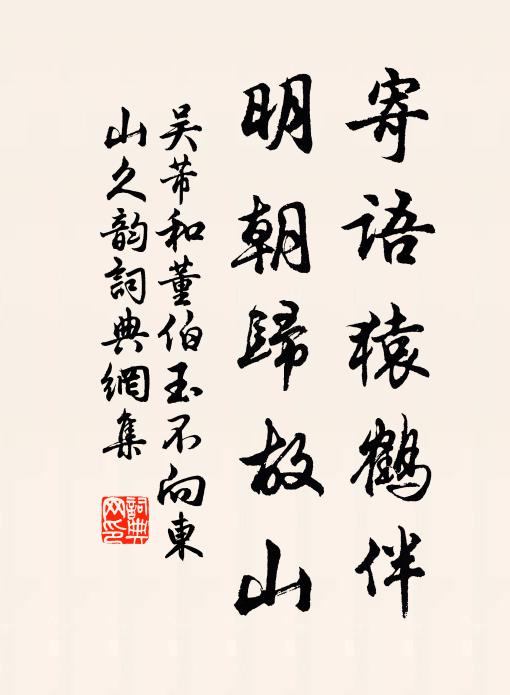 寄語猿鶴伴
明朝歸故山
吴芾和董伯玉不向東
山久韵詞典網集
詞典
网印